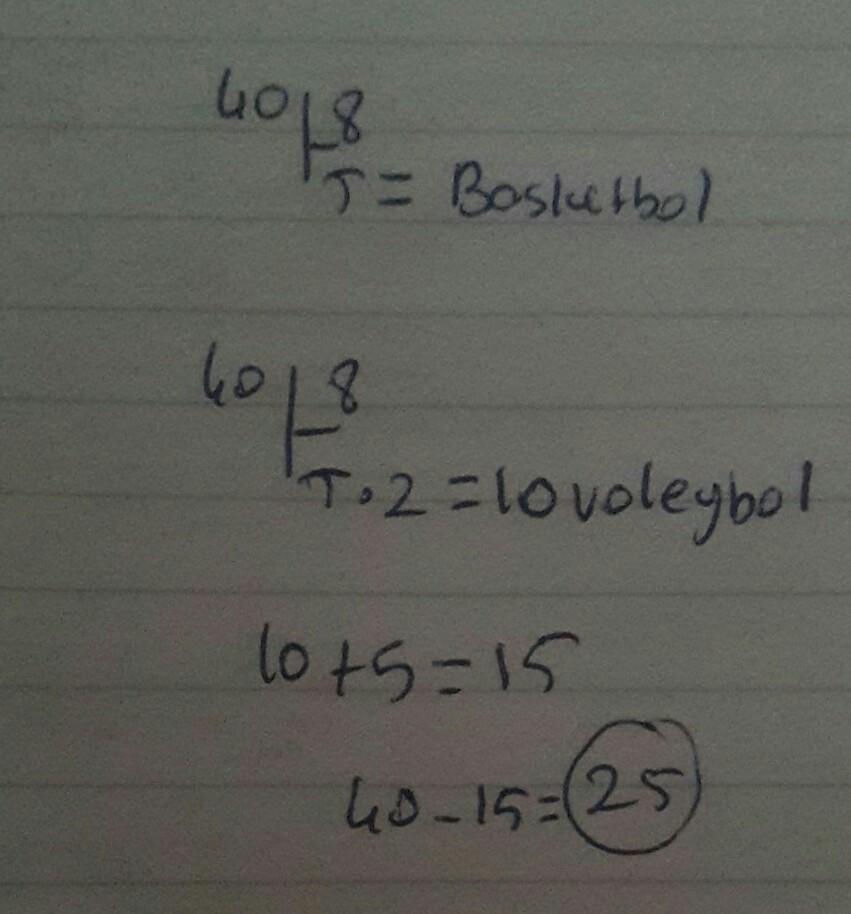 40 8
5 = Basketbol
40 8
5.2 = 10 voleybol
10 + 5 = 15
40 - 15 = 25